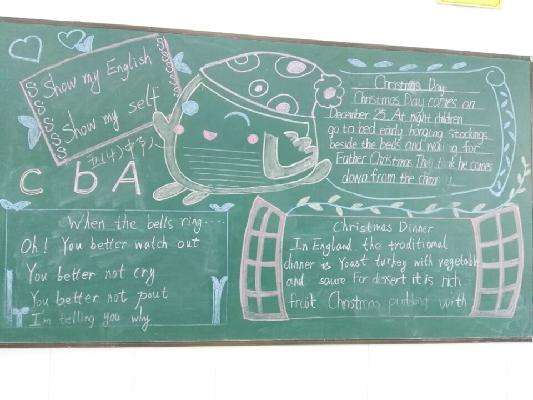 Show my English
Show my self
C b A
Christmas Day
Christmas Day comes on
December 25. At night children
go to bed early hanging stockings
beside the beds and waiting for
Father Christmas. They think he comes
down from the
When the bells ring....
Oh! You better watch out
You better not cry
You better not pout
I'm telling you why
Christmas Dinner
In England the traditional
dinner is Yoast turkey with vegetable
and sause For dessert it is rich
fruit Christmas pudding with